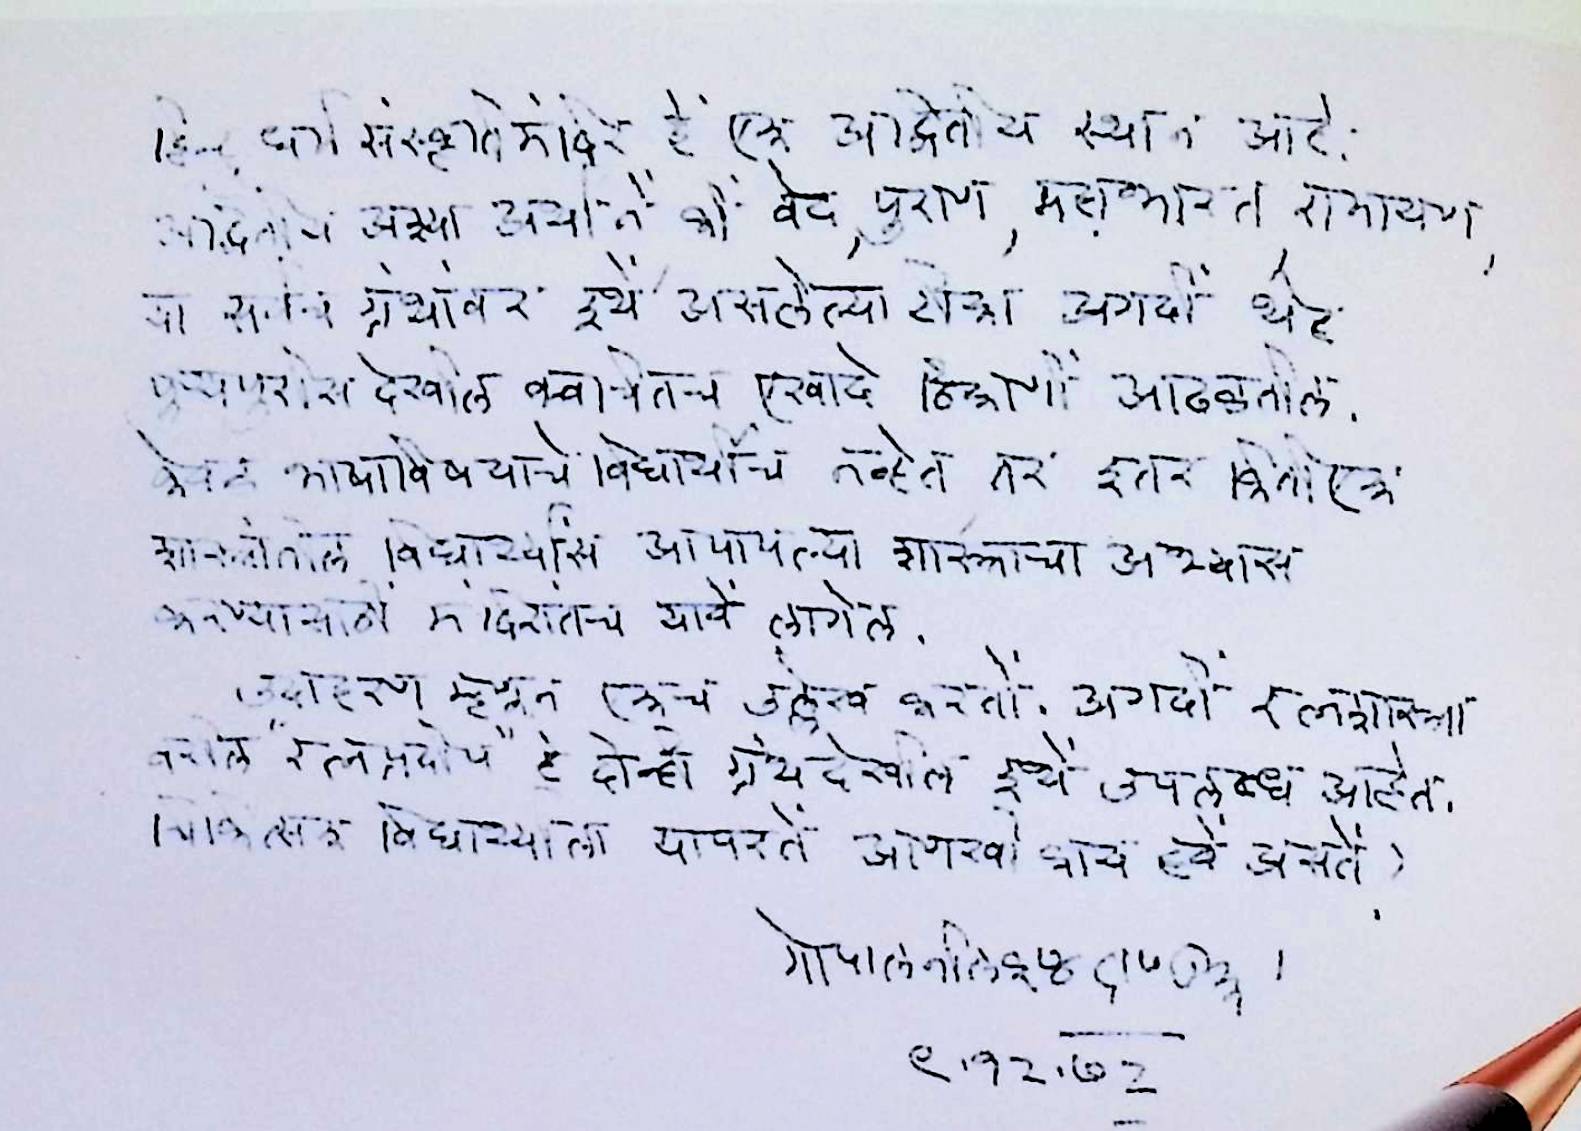 हिन्दू धर्म संस्कृति मंदिर हें एक अद्वितीय स्थान आहे.
अद्वितीय अश्या अर्थाने कीं वेद, पुराण, महाभारत, रामायण,
या सर्वच ग्रंथांवर इथें असलेल्या टीका अगदीं थेट
पुण्यपुरीस देखील क्वचितच एखादे ठिकाणीं आढळतील.
केवळ भाषाविषयाचे विद्यार्थीच नव्हेत तर इतर कितीएक
शास्त्रांतील विद्यार्थ्यांस आपापल्या शास्त्राचा अभ्यास
करण्यासाठीं मंदिरांतच यावें लागेल.
उदाहरण म्हणून एकच उल्लेख करतों. अगदीं रत्नशास्त्रा
वरील "रत्नप्रदीप" हे दोन्ही ग्रंथ देखील इथें उपलब्ध आहेत.
चिकित्सक विद्यार्थ्याला यापरतें आणखी काय हवें असतें?
गोपाल नीलकंठ
९.१२.७२